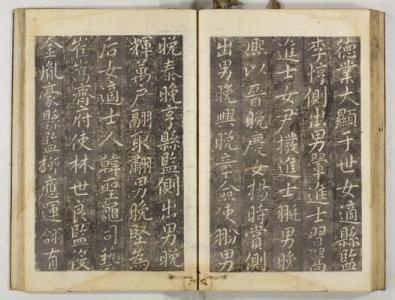 德業大顯于世女適縣監
李惇側出男翬進士習翯
進士女尹機進士挺男晚
興以晉晚慶女楊時賞側
出男晚興晚章僉使翂男
晚泰晚亨縣監側出男晚
輝萬戶翮取翻男晚堅為
后女適士人韓聖龜司執
崔嵩齊府使林世良監役
金胤豪縣監柳應運翎有